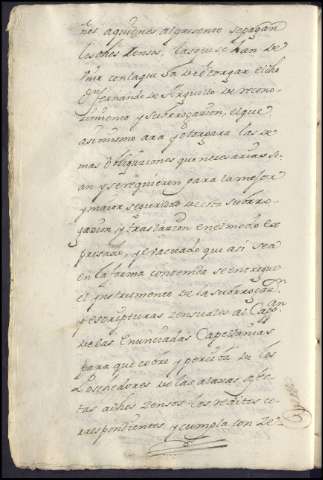 nos aquienes alpresente sepagan
los dhos Zensos, las que se han de
unir conlaque sea de otorgar el dho
Dn. Fernando de Arguillo de recono-
cimiento y subrrogacion, el que
asimismo ara y otorgara las de
mas obligaciones que necesarias se
an y serequieren para la mejor
y maior seguridad de esta subrro-
gacion, y traslacion enelmodo ex
presado, y efectuado que asi sea
en la forma contenida se entregue
el instrumento de la subrrogacion
y escripturas censuales al Cappn.
de las enunciadas Capellanias
para que cobre y perciba de los
Poseedores de las alajas afec
tas a dhos Zensos los reditos co
rrespondientes, y cumpla con de